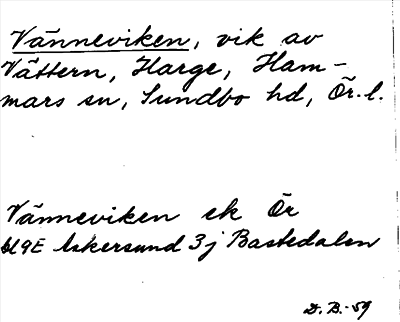 Vänneviken, vik av
Vättern, Harge, Ham-
mars sn, Sundbo hd, Ör. l.
Vänneviken ek Ör
bl 9E Askersund 3j Bastedalen
D. B. -59